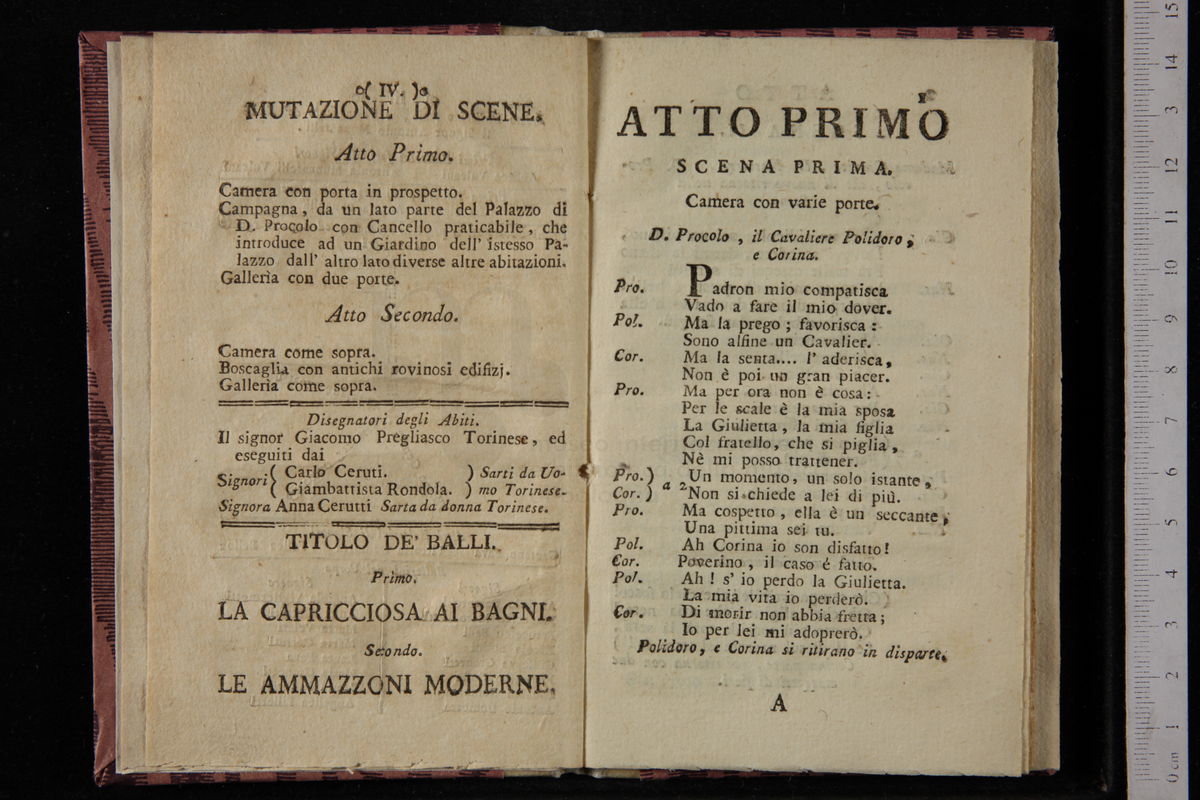 ( IV. )
MUTAZIONE DI SCENE.
Atto Primo.
Camera con porta in prospetto.
Campagna, da un lato parte del Palazzo di
D. Procolo con Cancello praticabile, che
introduce ad un Giardino dell' istesso Pa-
lazzo dall' altro lato diverse altre abitazioni.
Galleria con due porte.
Atto Secondo.
Camera come sopra.
Boscaglia con antichi rovinosi edifizj.
Galleria come sopra.
Disegnatori degli Abiti.
Il signor Giacomo Pregliasco Torinese, ed
eseguiti dai
Signori ( Carlo Ceruti. ) Sarti da Uo-
( Giambattista Rondola. ) mo Torinese.
Signora Anna Cerutti Sarta da donna Torinese.
TITOLO DE' BALLI.
Primo.
LA CAPRICCIOSA AI BAGNI.
Secondo.
LE AMMAZZONI MODERNE.
1
ATTO PRIMO
SCENA PRIMA.
Camera con varie porte.
D. Procolo, il Cavaliere Polidoro,
e Corina.
Pro. Padron mio compatisca
Vado a fare il mio dover.
Pol. Ma la prego; favorisca:
Sono alfine un Cavalier.
Cor. Ma la senta.... l' aderisca,
Non è poi un gran piacer.
Pro. Ma per ora non è cosa:
Per le scale è la mia sposa
La Giulietta, la mia figlia
Col fratello, che si piglia,
Nè mi posso trattener.
Pro. ) a 2 Un momento, un solo istante,
Cor. ) Non si chiede a lei di più.
Pro. Ma cospetto, ella è un seccante,
Una pittima sei tu.
Pol. Ah Corina io son disfatto!
Cor. Poverino, il caso é fatto.
Pol. Ah! s' io perdo la Giulietta.
La mia vita io perderò.
Cor. Di morir non abbia fretta;
Io per lei mi adoprerò.
Polidoro, e Corina si ritirano in disparte.
A
0 cm 1 2 3 4 5 6 7 8 9 10 11 12 13 14 15